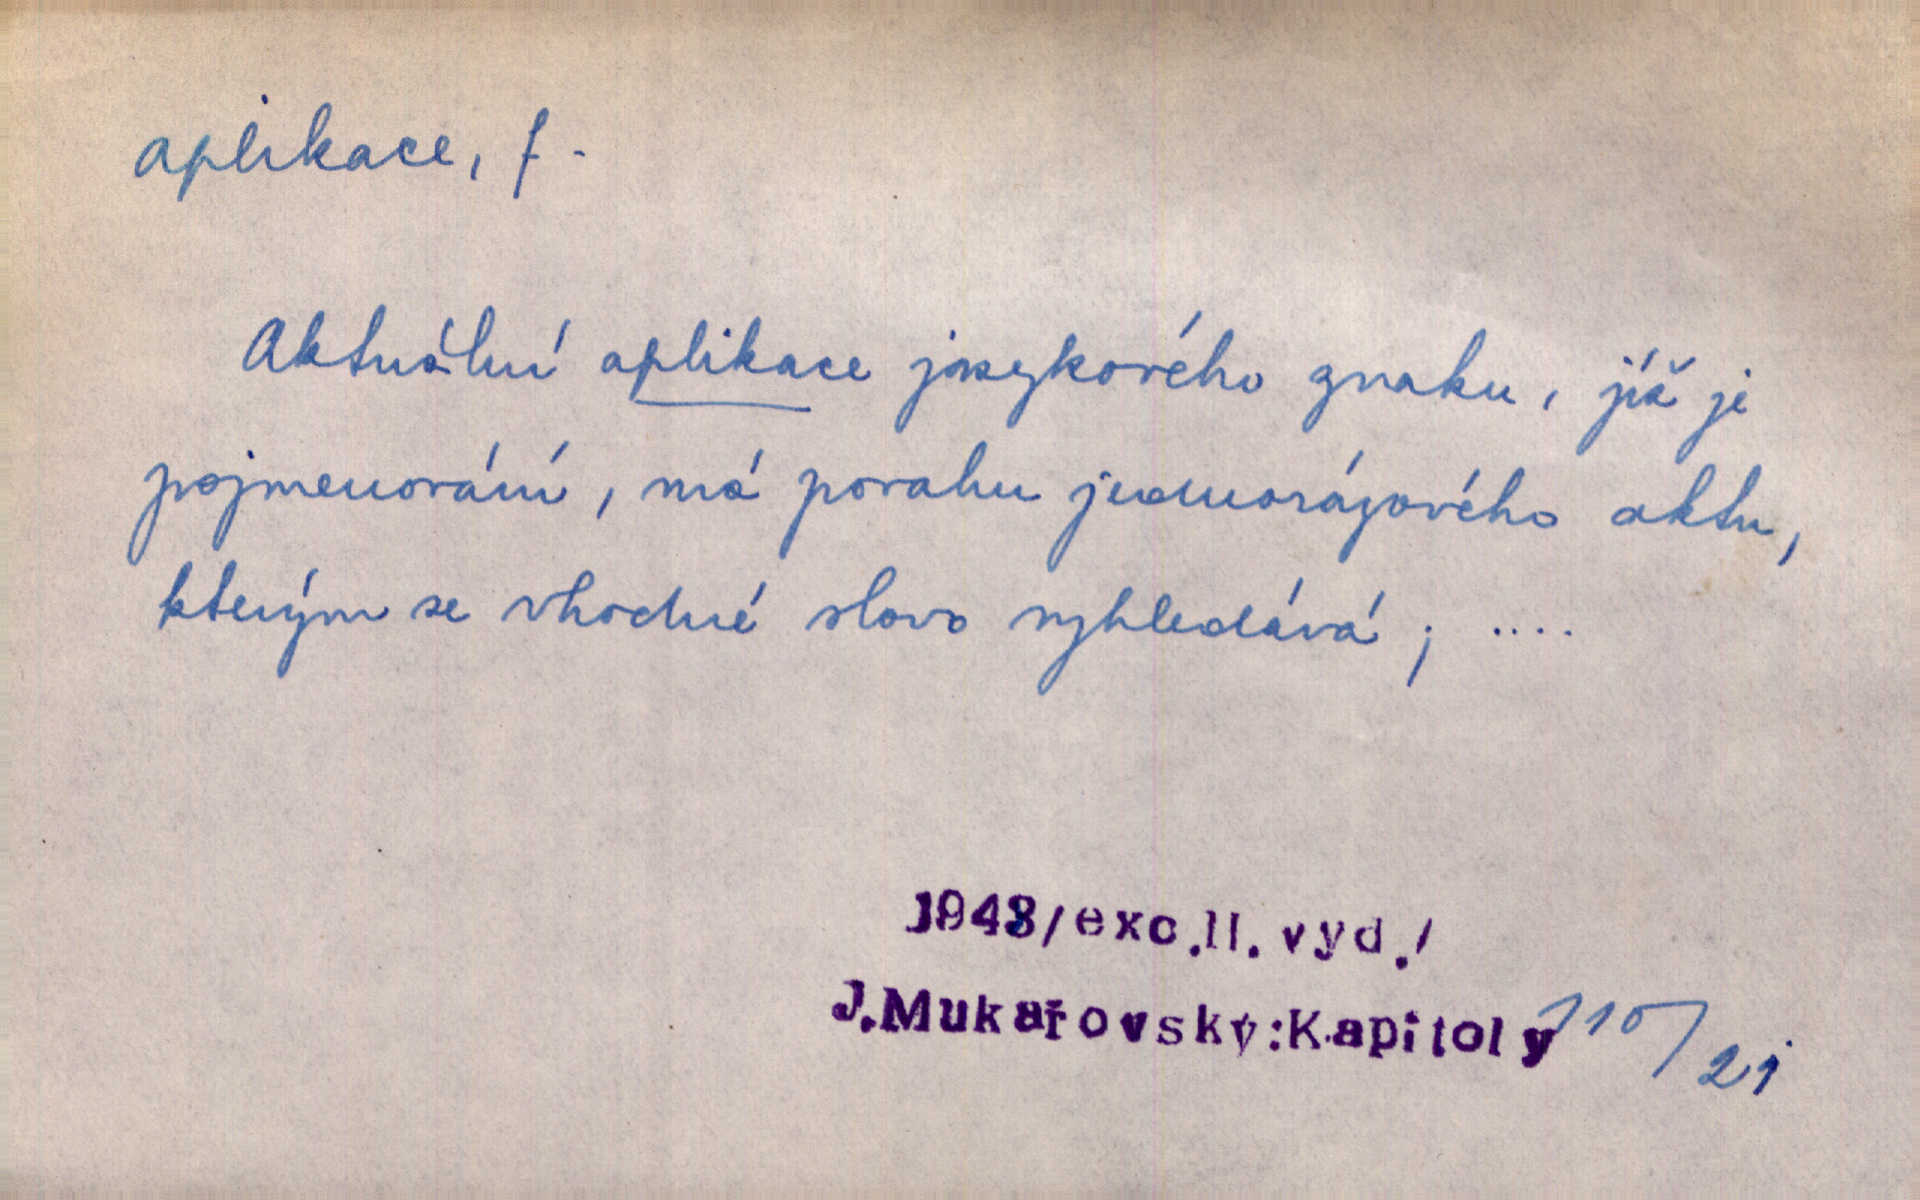 aplikace, f.
Aktuální aplikace jazykového znaku, jíž je
pojmenování, má povahu jednorázového aktu,
kterým se vhodné slovo vyhledává; ....
1948/exc.II.vyd./
J.Mukařovský:Kapitoly 110/21